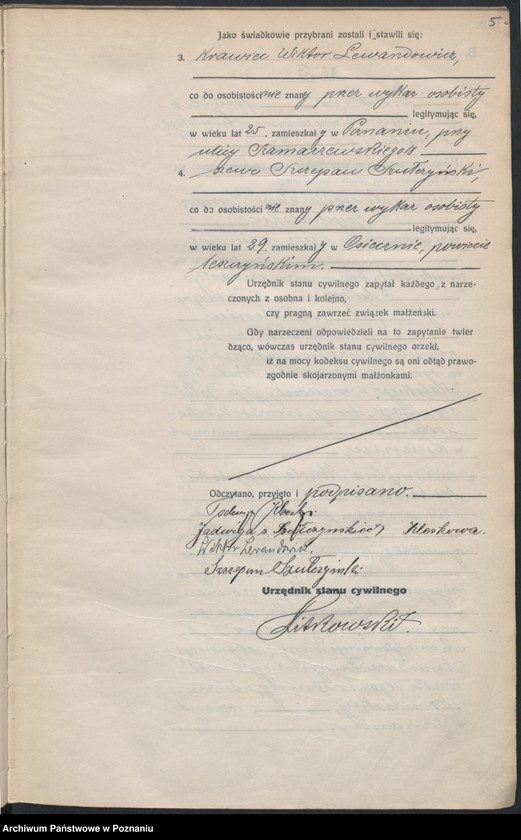 5
Jako świadkowie przybrani zostali i stawili się:
3. Krawiec Wiktor Lewandowicz,
co do osobistości nie znany przez wykaz osobisty
legitymując się,
w wieku lat 25, zamieszkały w Poznaniu, przy
ulicy
4. Szczepan Szułczyński,
co do osobistości nie znany przez wykaz osobisty
legitymując się,
w wieku lat 29, zamieszkały w Osiecznie, powiecie
leszczyńskim.
Urzędnik stanu cywilnego zapytał każdego z narze-
czonych z osobna i kolejno,
czy pragną zawrzeć związek małżeński.
Gdy narzeczeni odpowiedzieli na to zapytanie twier
dząco, wówczas urzędnik stanu cywilnego orzekł,
iż na mocy kodeksu cywilnego są oni odtąd prawo-
zgodnie skojarzonymi małżonkami.
Odczytano, przyjęto i podpisano.
Jadwiga z Szułczyńskich
Wiktor Lewandowicz.
Szczepan Szułczyński
Urzędnik stanu cywilnego
Archiwum Państwowe w Poznaniu